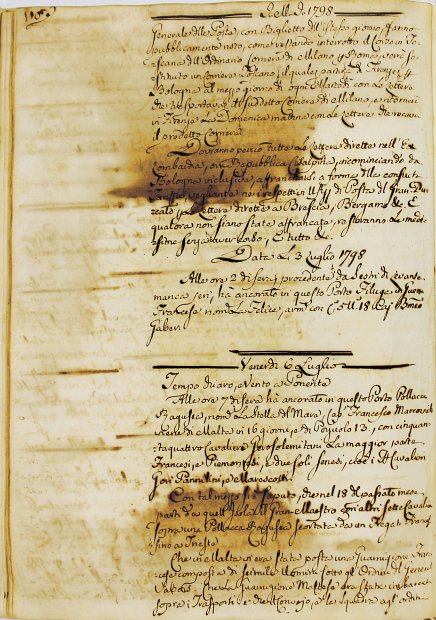 1798
Generale delle Poste con Biglietto dell'istesso giorno, fanno
pubblicamente noto, come restando interrotto il Corso in To-
scana dell'Ordinario Corriere di Milano p Roma, verrà so-
stituito un Corriere Toscano, il quale partirà di Firenze p
Bologna al mezzo giorno di ogni Martedì con le Lettere
che trasportava il suddetto Corriere di Milano, e ritornerà
in Firenze la Domenica mattina con le Lettere che recava
il prodetto Corriere
Dovranno perciò tutte le Lettere dirette nell'Ex
Lombardia, ora Repubblica Cisalpina, incominciando da
Bologna inclusive, affrancarsi a forma delle consuete
vegliante nei respettivi Uffizj di Posta del Gran-Du-
cato p Lettere dirette a Brescia, Bergamo &c. E
qualora non siano state affrancate, resteranno le mede-
sime senza aver corso, E tutto &c.
Data li 3 Luglio 1798
Alle ore 2 di sera, procedente da Sestri di Levante
manca, ieri, ha ancorato in questo Porto
Francese nomta La Felice,
Gaberi
Venerdì 6 Luglio
Tempo chiaro, e Vento a Ponente
Alle ore 7 di sera ha ancorato in questo Porto Pollacca
Ragusea, nomta La Stella del Mare, Cap. Francesco Marcovich
viene di Malta in 16 giorni, e di Pozzuolo 13, con cinquan-
taquattro Cavalieri Gerosolemitani La maggior parte
Francesi, e Piemontesi, e due soli Senesi, cioè i SS. Cavalieri
Gori Pannelini, e Marescotti.
Con tal mezzo si è saputo, che nel 18 del passato mese
partì da quell'Isola il Gran-Maestro con altri sette Cavalieri
sopra una Pollacca Ragusea scortata da un Fregata Francese
sino a Trieste
Che in Malta vi era stata posta una Guarnigione Fran-
cese composta di seimila uomini sotto gli Ordini del General
Vaubois. Che la Guarnigione Maltese era stata imbarcata
sopra i Trasporti di detto Convojo, e le squadre agli ordini